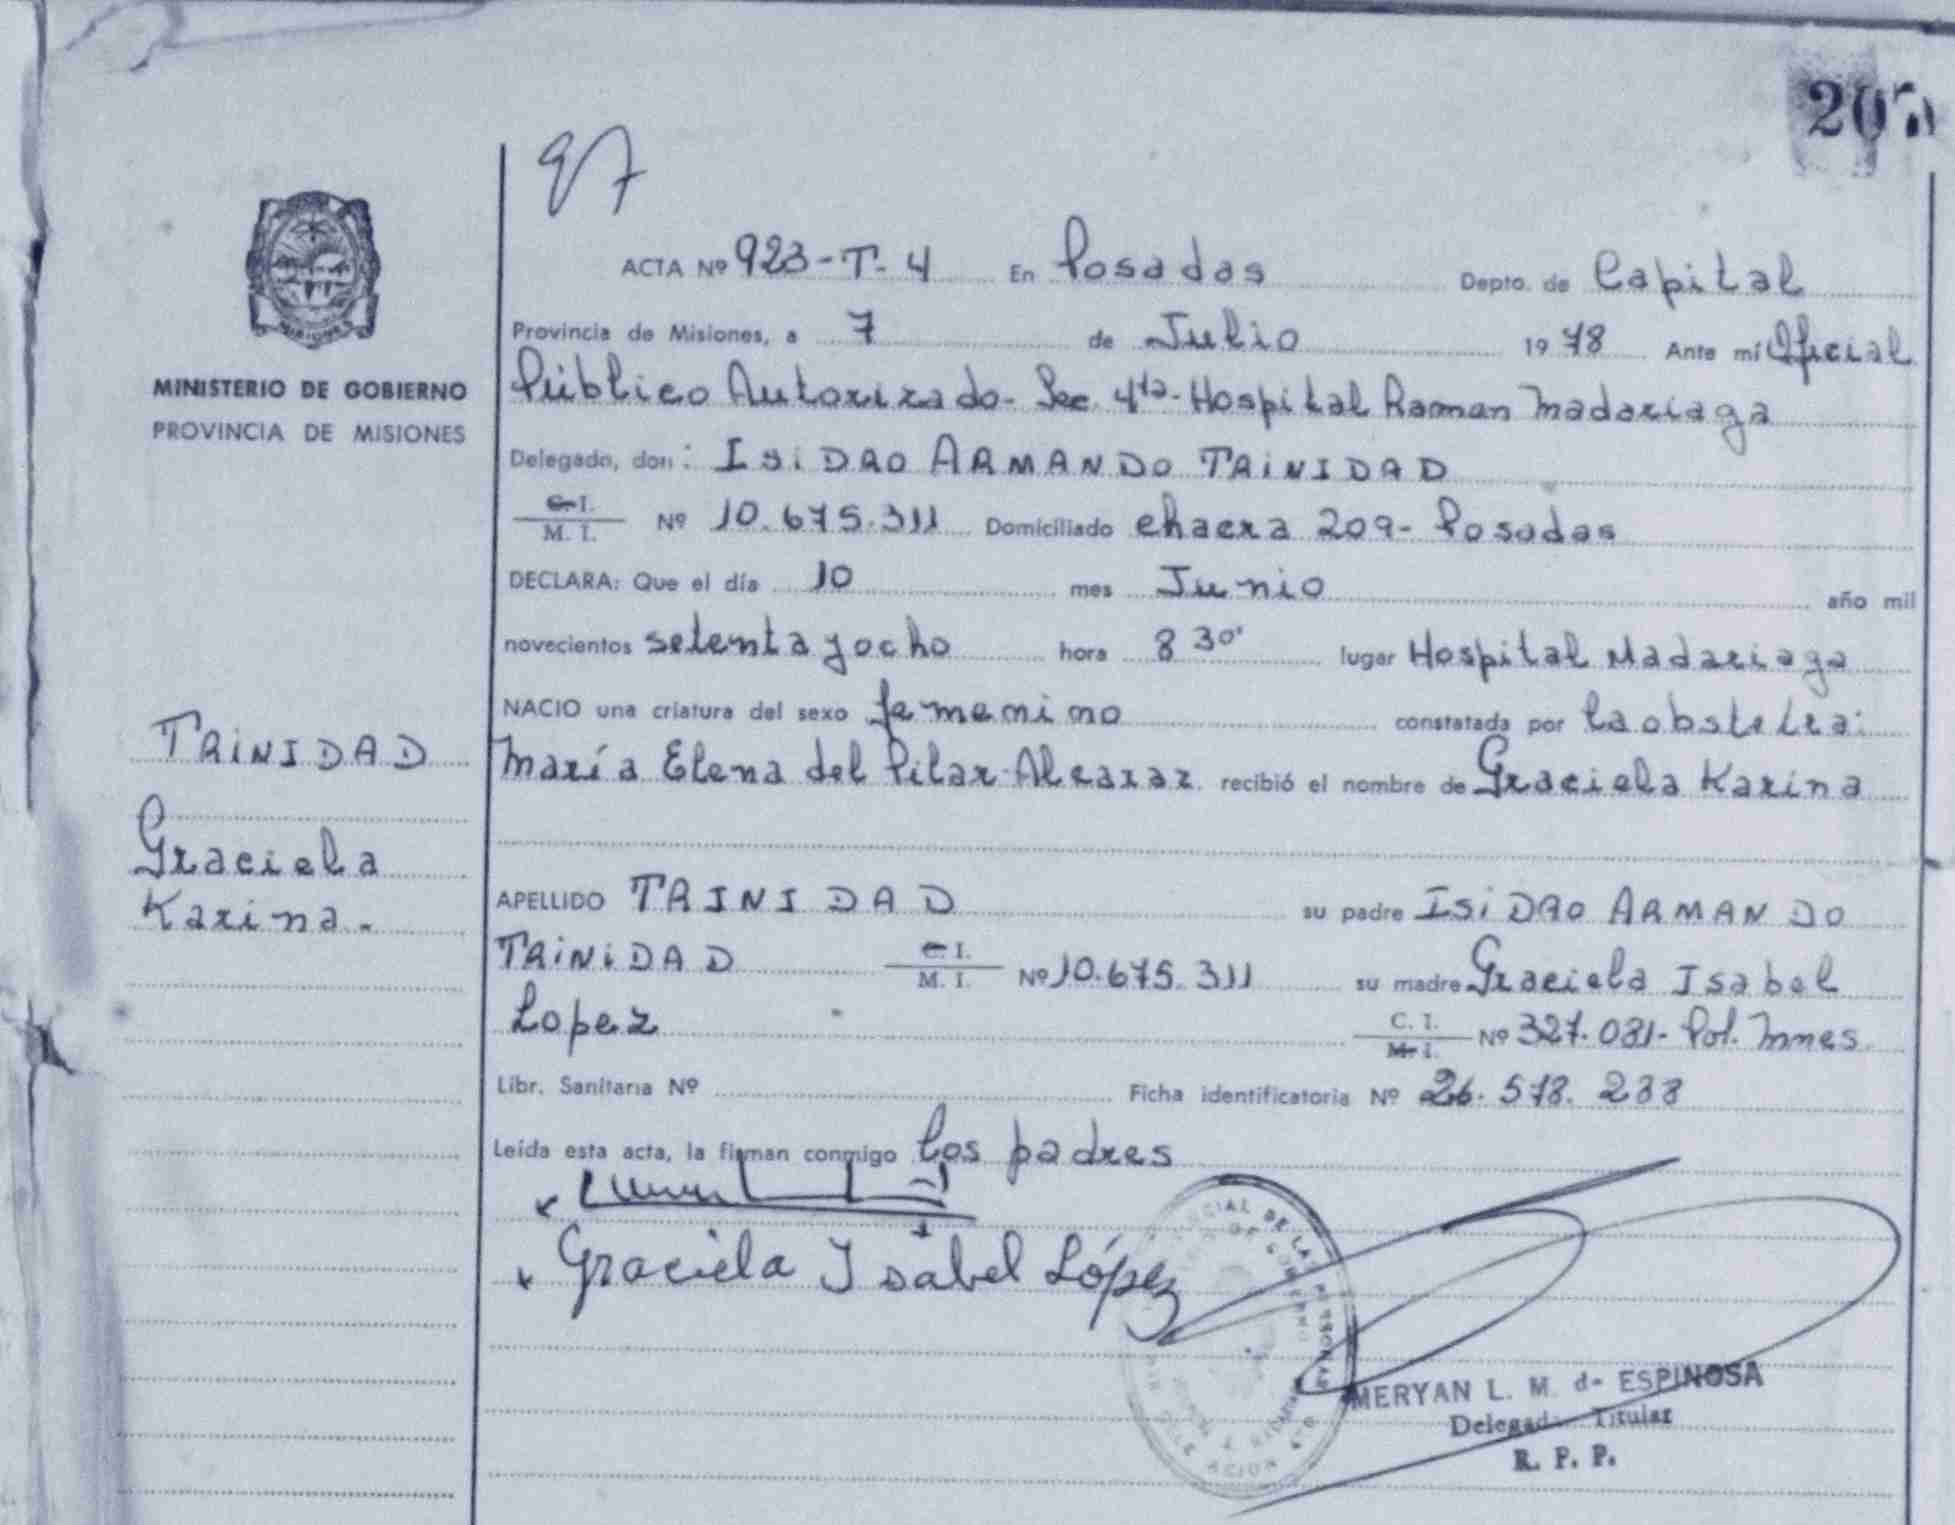 97
ACTA Nº 923-T-4 En Posadas Depto. de Capital
Provincia de Misiones, a 7 de Julio 1978 Ante mí Oficial
Público Autorizado- Sec. 4ta- Hospital Ramon Madariaga
Delegado, don: ISIDRO ARMANDO TRINIDAD
C. I. / M. I. Nº 10.675.311 Domiciliado chacra 209- Posadas
DECLARA: Que el día 10 mes Junio año mil
novecientos setenta y ocho hora 8 30' lugar Hospital Madariaga
NACIO una criatura del sexo femenino constatada por la obstetra:
María Elena del Pilar Alcaraz recibió el nombre de Graciela Karina
APELLIDO TRINIDAD su padre ISIDRO ARMANDO
TRINIDAD C. I. / M. I. Nº 10.675.311 su madre Graciela Isabel
Lopez C. I. / M. I. Nº 327.081- Pol. Mnes.
Libr. Sanitaria Nº Ficha identificatoria Nº 26.578.233
Leída esta acta, la firman conmigo los padres
Graciela Isabel López
MERYAN L. M. de ESPINOSA
Delegada Titular
R. P. P.
MINISTERIO DE GOBIERNO
PROVINCIA DE MISIONES
TRINIDAD
Graciela
Karina.-